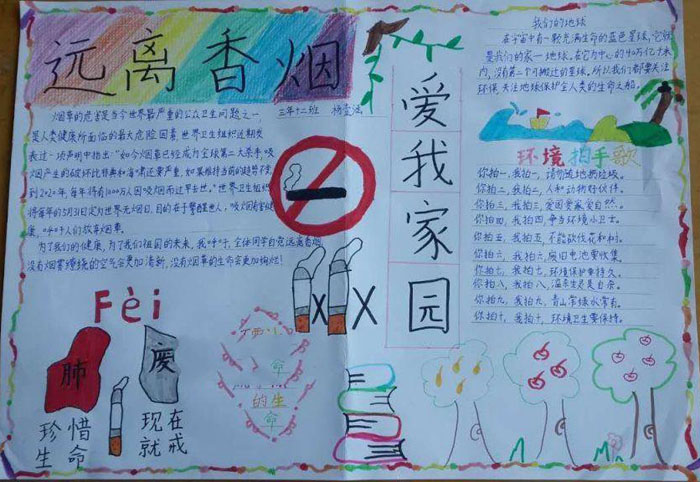 远离香烟
三年十二班
烟草的危害是当今世界最严重的公众卫生问题之一
是人类健康所面临的最大危险因素,世界卫生组织近期发
表过一项声明中指出:"如今烟草已经成为全球第二大杀手,吸
烟产生的破坏比非典和海啸还要严重,如果维持当前的趋势不变,
到2020年,每年将有1000万人因吸烟而过早去世。"世界卫生组织
将每年的5月31日定为世界无烟日,目的在于警醒世人,吸烟有害健
康,呼吁人们放弃烟草。
为了我们的健康,为了我们祖国的未来,我呼吁,全体同学自觉远离香烟
没有烟雾缭绕的空气会更加清新,没有烟草的生命会更加绚烂!
Fèi
肺
废
珍惜
生命
现在
就戒
命
的生
命
XX
爱我家园
我们的地球
在宇宙中有一颗充满生命的蓝色星球,它就
是我们的家—地球,在它方心的40万亿千米
内,没有第二个可搬迁的星球,所以我们都要关注
环保,关注地球保护全人类的生命之船。
环境拍手歌
你拍一,我拍一,请勿随地扔垃圾。
你拍二,我拍二,人和动物好伙伴。
你拍三,我拍三,爱国爱家爱自然。
你拍四,我拍四,争当环境小卫士。
你拍五,我拍五,不能砍伐花和树。
你拍六,我拍六,废旧电池要收集。
你拍七,我拍七,环境保护要持久。
你拍八,我拍八,
你拍九,我拍九,青山常绿水常有。
你拍十,我拍十,环境卫生要保持。